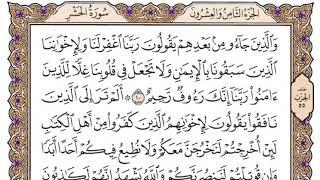 الجزء الثامن والعشرون سورة الحشر
وَالَّذِينَ جَاءُو مِنْ بَعْدِهِمْ يَقُولُونَ رَبَّنَا اغْفِرْ لَنَا وَلِإِخْوَانِنَا
الَّذِينَ سَبَقُونَا بِالْإِيمَانِ وَلَا تَجْعَلْ فِي قُلُوبِنَا غِلًّا لِلَّذِينَ
ءَامَنُوا رَبَّنَا إِنَّكَ رَءُوفٌ رَحِيمٌ ١٠ ۞ أَلَمْ تَرَ إِلَى الَّذِينَ
نَافَقُوا يَقُولُونَ لِإِخْوَانِهِمُ الَّذِينَ كَفَرُوا مِنْ أَهْلِ الْكِتَابِ
لَئِنْ أُخْرِجْتُمْ لَنَخْرُجَنَّ مَعَكُمْ وَلَا نُطِيعُ فِيكُمْ أَحَدًا أَبَدًا
وَإِنْ قُوتِلْتُمْ لَنَنْصُرَنَّكُمْ وَاللَّهُ يَشْهَدُ إِنَّهُمْ لَكَاذِبُونَ